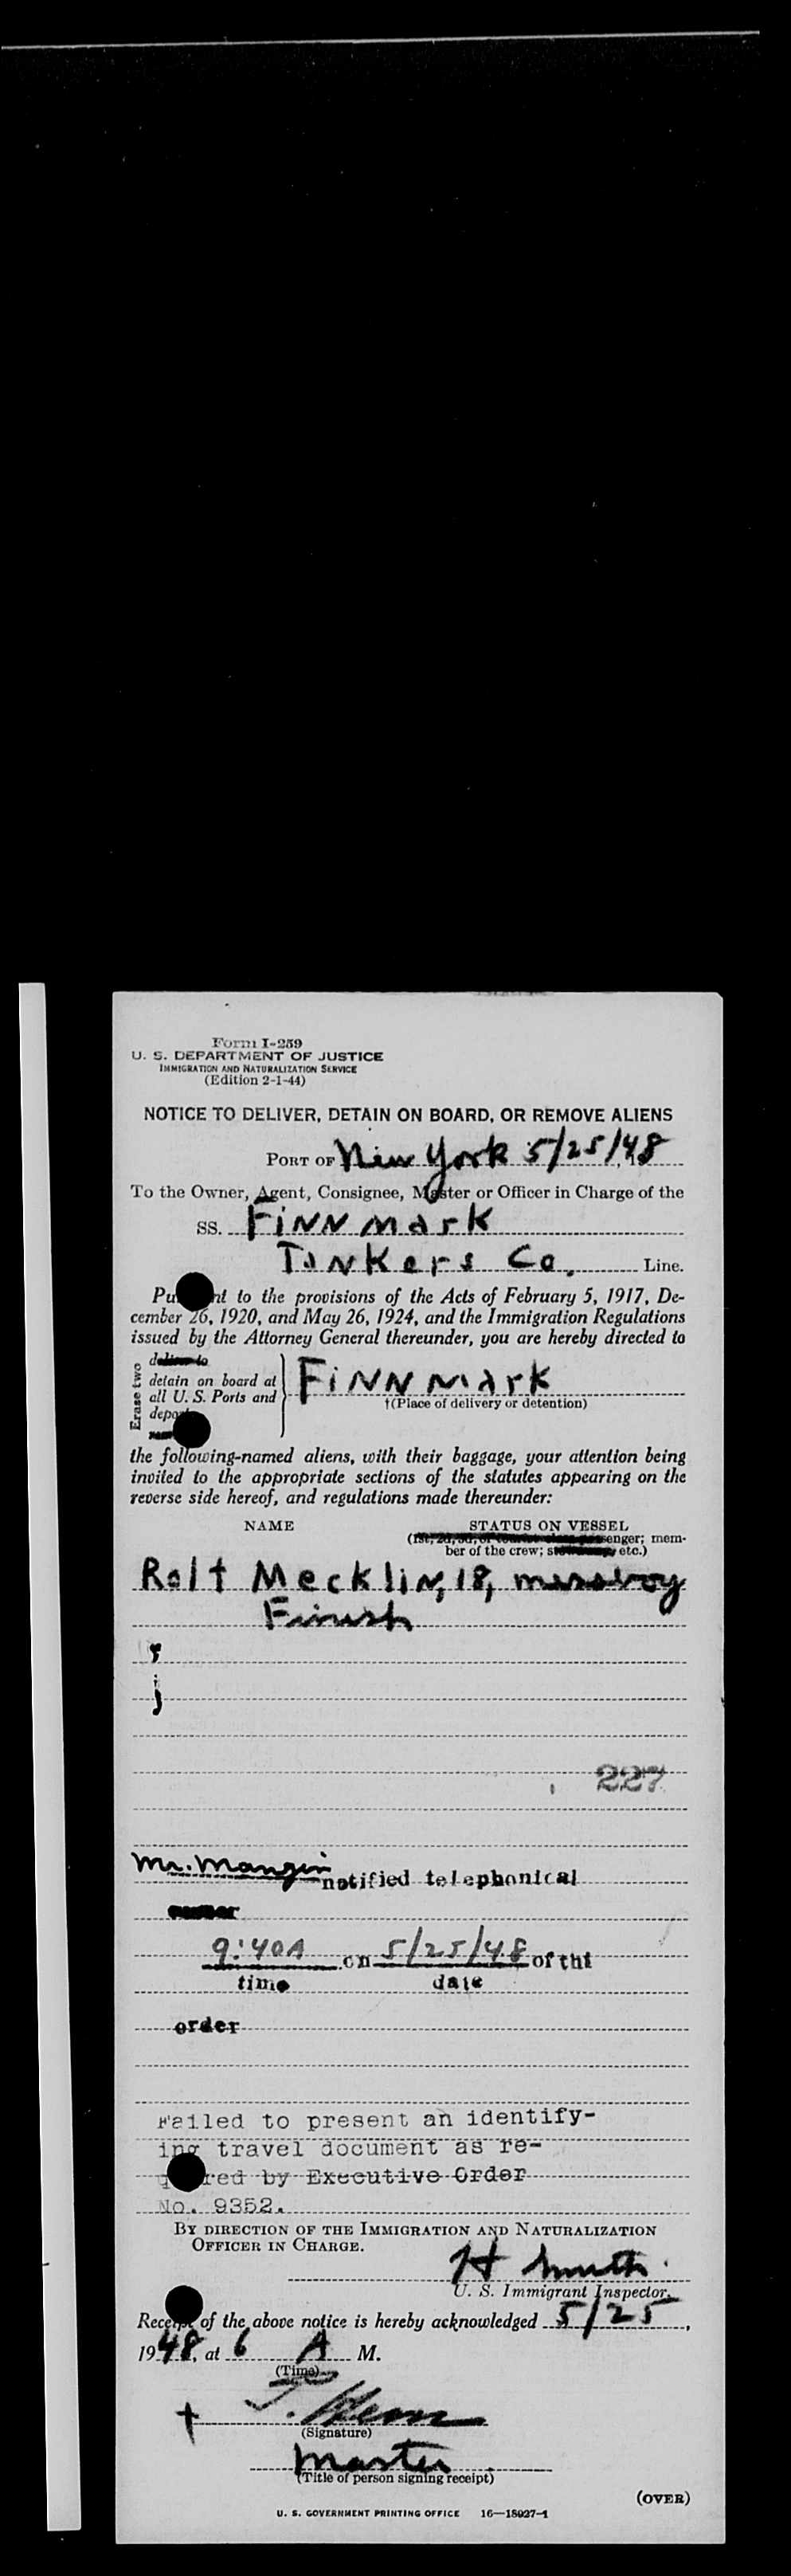 Form I-259
U. S. DEPARTMENT OF JUSTICE
IMMIGRATION AND NATURALIZATION SERVICE
(Edition 2-1-44)
NOTICE TO DELIVER, DETAIN ON BOARD, OR REMOVE ALIENS
PORT OF New York 5/25/48
To the Owner, Agent, Consignee, Master or Officer in Charge of the
SS. FINNMark
TaNKers Co. Line.
to the provisions of the Acts of February 5, 1917, De-
cember 26, 1920, and May 26, 1924, and the Immigration Regulations
issued by the Attorney General thereunder, you are hereby directed to
Erase two
detain on board at
all U. S. Ports and
FINNMark
†(Place of delivery or detention)
the following-named aliens, with their baggage, your attention being
invited to the appropriate sections of the statutes appearing on the
reverse side hereof, and regulations made thereunder:
NAME STATUS ON VESSEL
mem-
ber of the crew; etc.)
Mecklin, 18, messboy
Finish
227
Mr. Mangin notified telephonical
9:40A on 5/25/48 of tht
time date
order
Failed to present an identify-
ing travel document as re-
red by Executive Order
No. 9352.
BY DIRECTION OF THE IMMIGRATION AND NATURALIZATION
OFFICER IN CHARGE.
H Smith
U. S. Immigrant Inspector.
Receipt of the above notice is hereby acknowledged 5/25,
1948, at 6 A M.
(Time)
(Signature)
Master
(Title of person signing receipt)
(OVER)
U. S. GOVERNMENT PRINTING OFFICE 16—18027-1